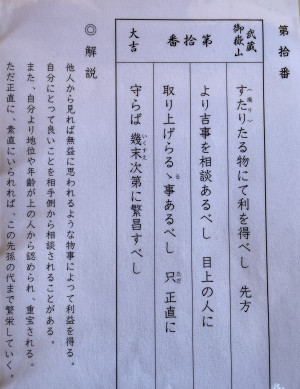 第拾番
武蔵
御嶽山
第拾番
大吉
すたりたる物にて利を得べし 先方
より吉事を相談あるべし 目上の人に
取り上げらるゝ事あるべし 只正直に
守らば 幾末次第に繁昌すべし
◎解説
他人から見れば無益に思われるような物事によって利益を得る。
自分にとって良いことを相手側から相談されることがある。
また、自分より地位や年齢が上の人から認められ、重宝される。
ただ正直に、素直にいられれば、この先孫の代まで繁栄していく。